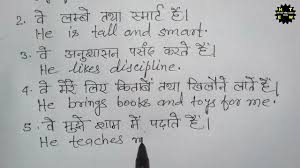 2. वे लम्बे तथा स्मार्ट हैं।
He is tall and smart.
3. वे अनुशासन पसंद करते हैं।
He likes discipline.
4. वे मेरे लिए किताबें तथा खिलौने लाते हैं।
He brings books and toys for me.
5. वे मुझे शाम में पढ़ाते हैं।
He teaches m